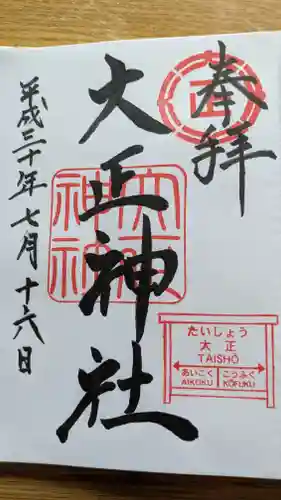 奉拝
大正神社
平成三十年七月十六日
たいしょう
大正
TAISHŌ
あいこく
AIKOKU
こうふく
KŌFUKU